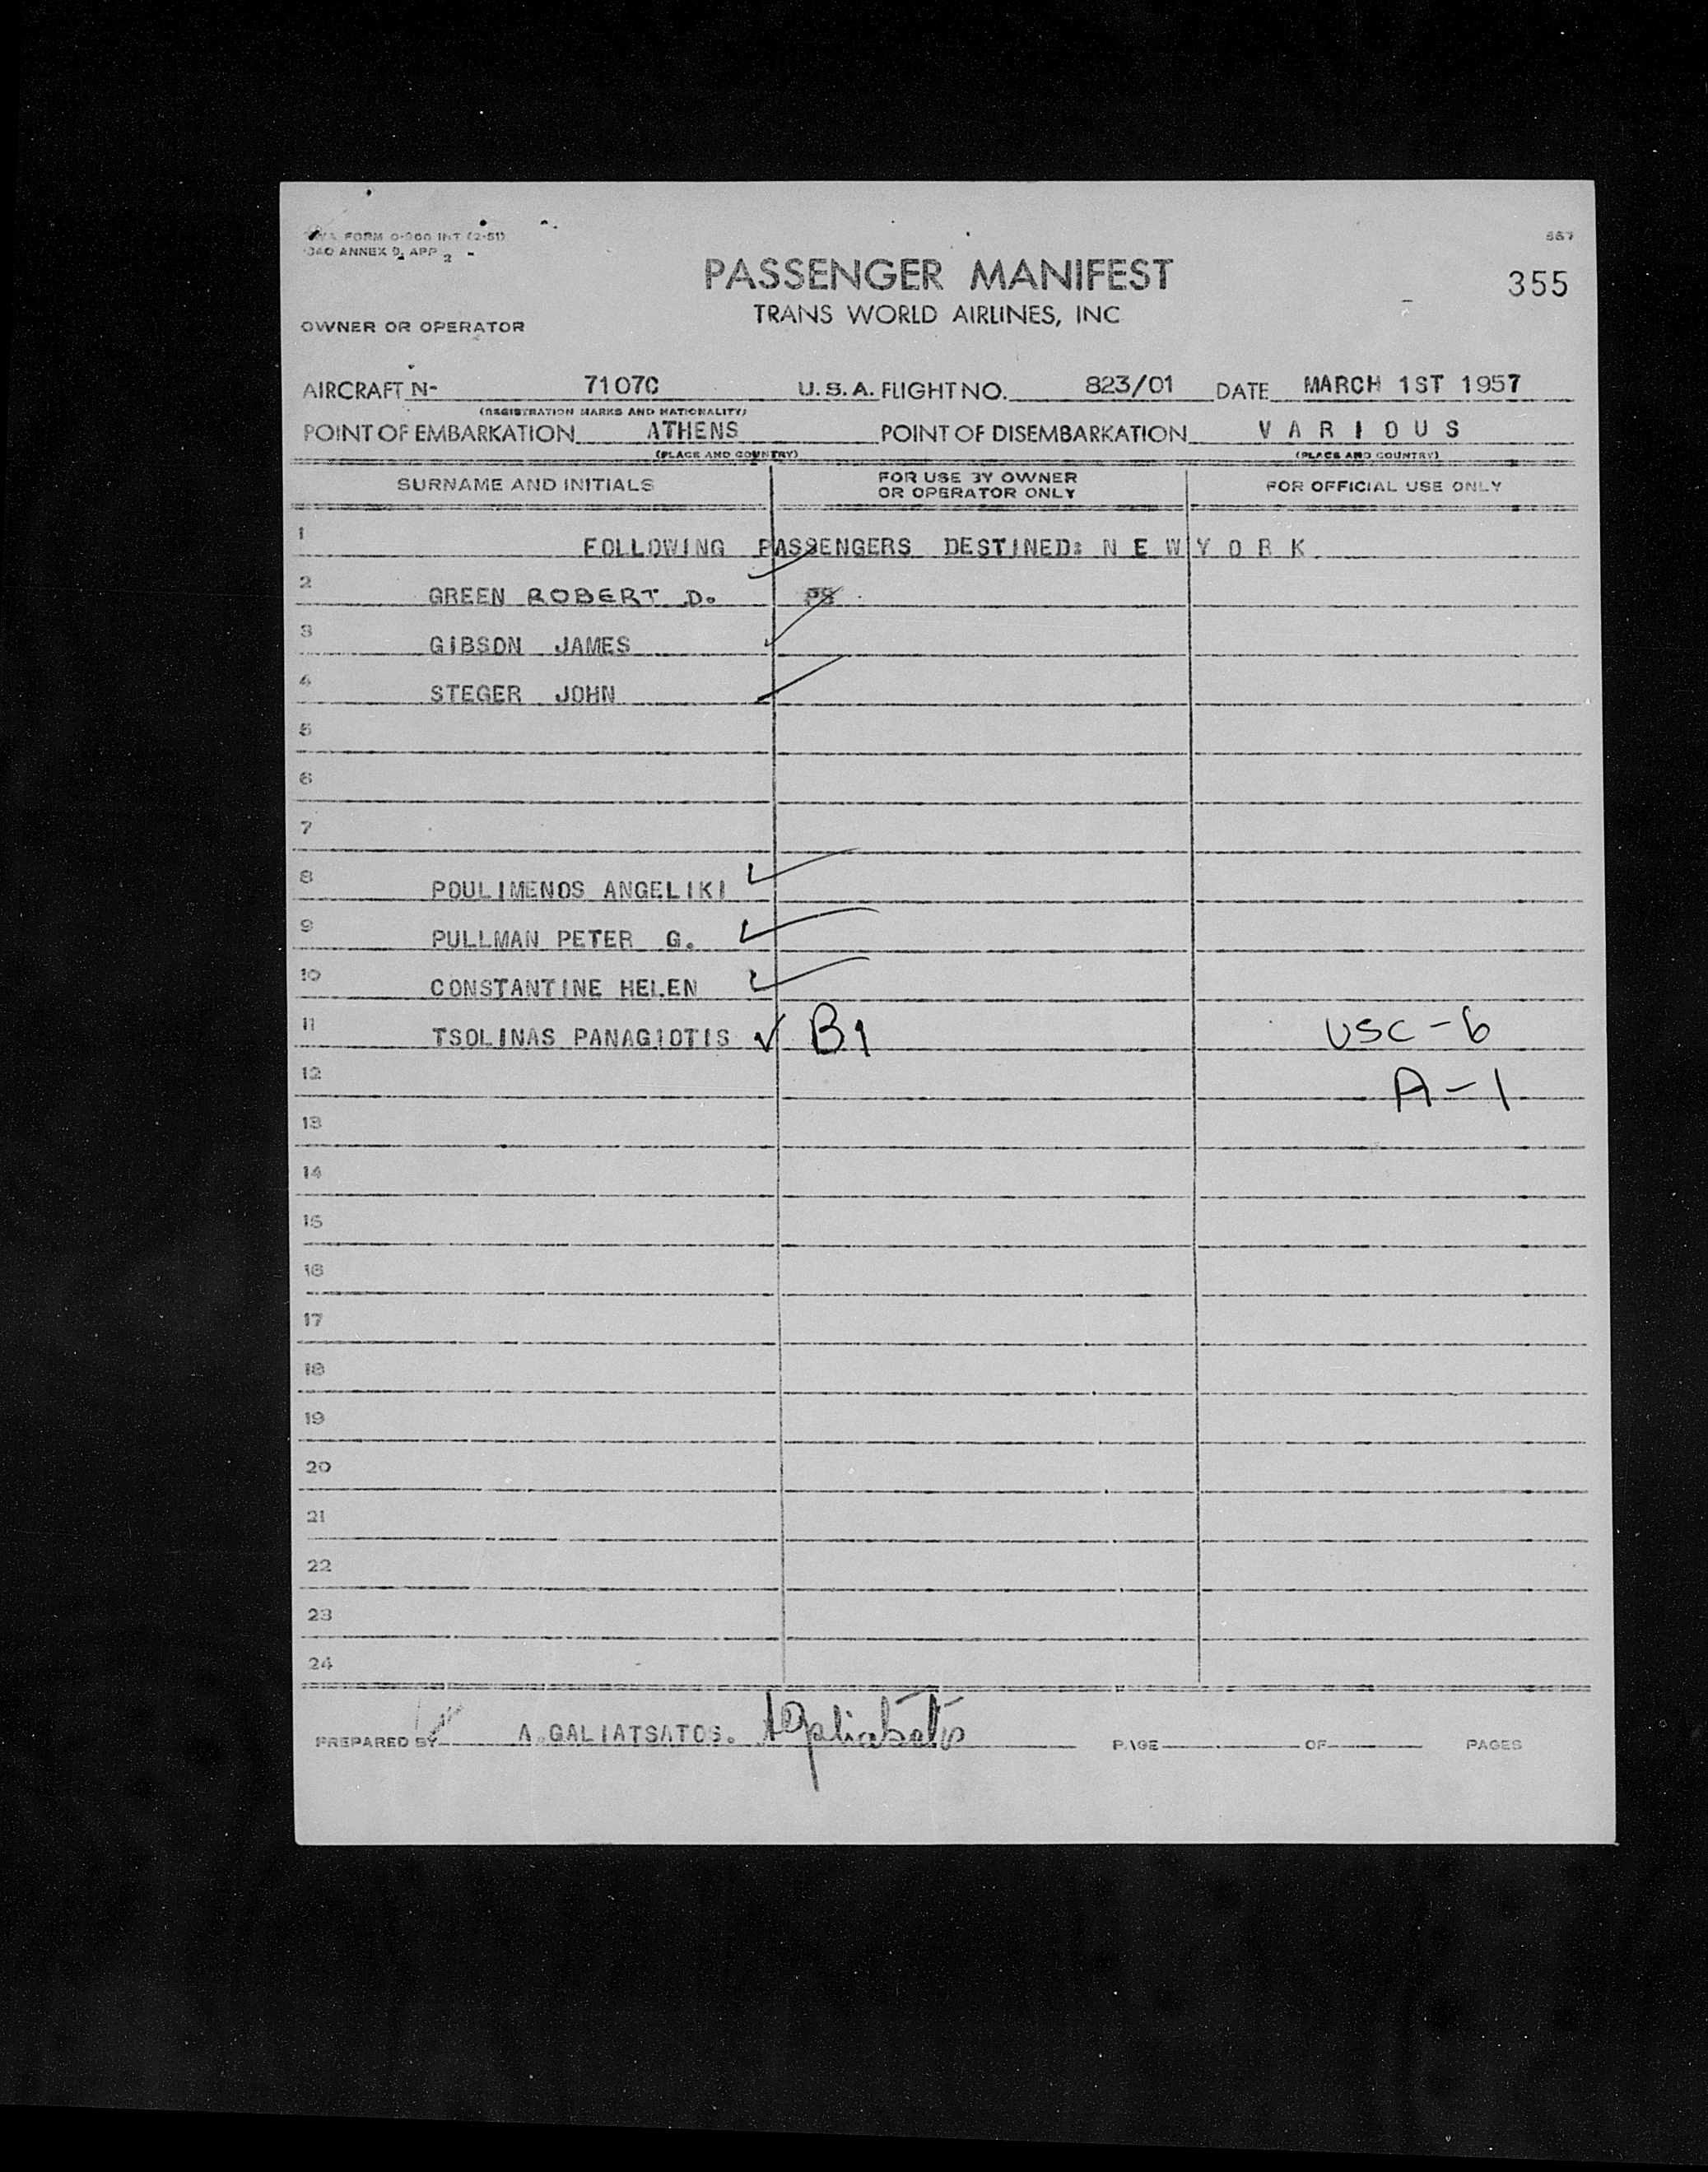 TWA FORM O-900 INT (2-51)
ICAO ANNEX 9, APP 2
567
PASSENGER MANIFEST
355
TRANS WORLD AIRLINES, INC
OWNER OR OPERATOR
AIRCRAFT N- 7107C U.S.A. FLIGHT NO. 823/01 DATE MARCH 1ST 1957
(REGISTRATION MARKS AND NATIONALITY)
POINT OF EMBARKATION ATHENS POINT OF DISEMBARKATION VARIOUS
(PLACE AND COUNTRY) (PLACE AND COUNTRY)
SURNAME AND INITIALS FOR USE BY OWNER OR OPERATOR ONLY FOR OFFICIAL USE ONLY
1 FOLLOWING PASSENGERS DESTINED: NEW YORK
2 GREEN ROBERT D.
3 GIBSON JAMES
4 STEGER JOHN
5
6
7
8 POULIMENOS ANGELIKI
9 PULLMAN PETER G.
10 CONSTANTINE HELEN
11 TSOLINAS PANAGIOTIS B1 USC-6
12 A-1
13
14
15
16
17
18
19
20
21
22
23
24
PREPARED BY A.GALIATSATOS. AGaliatsatos PAGE OF PAGES